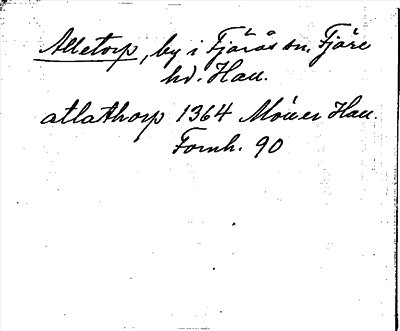 Alletorp, by i Fjärås sn. Fjäre
hd. Hall.
atlathorp 1364 Möller Hall.
Fornh. 90